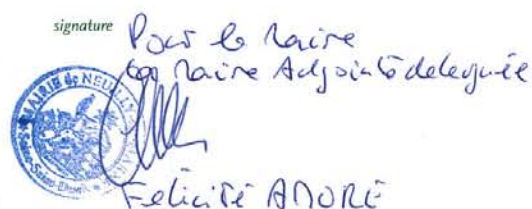 signature
Pour le Maire
La Maire Adjointe déléguée
MAIRIE de NEUILLY
Seine-Saint-Denis
Félicité ANDRÉ